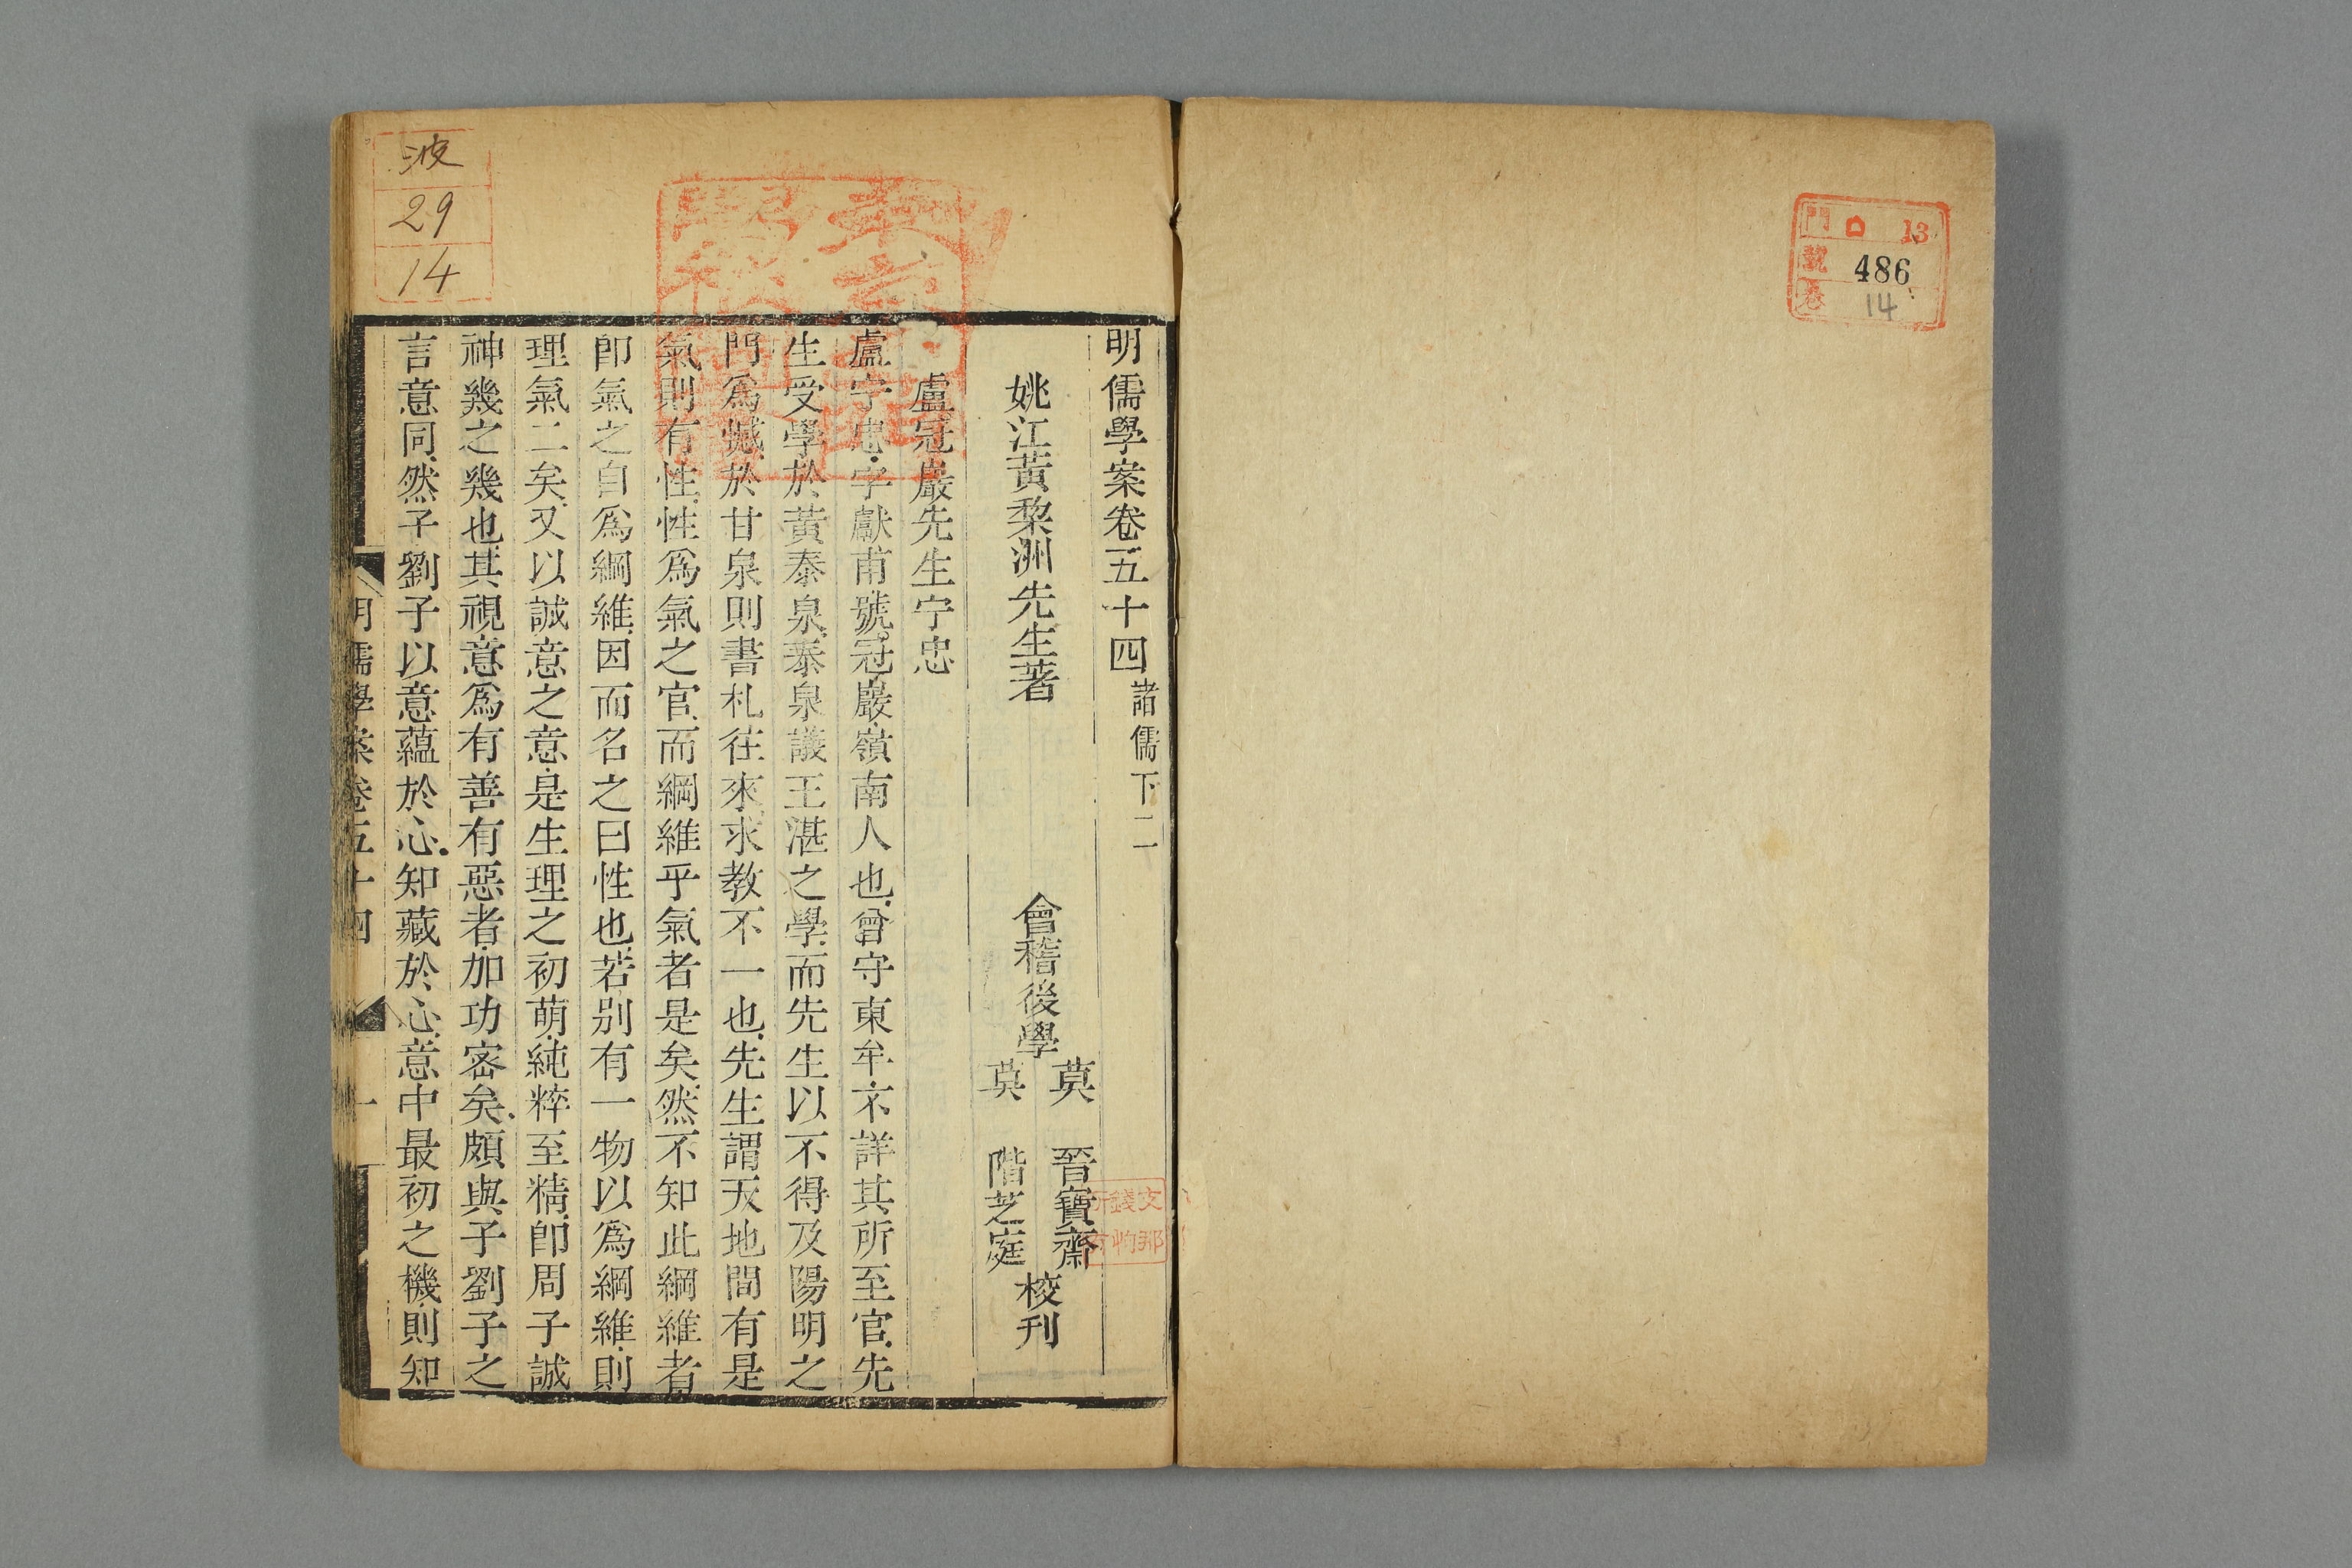 門 口 13
號 486
卷 14
明儒學案卷五十四 諸儒下二
姚江黃棃洲先生著
會稽後學
莫 晉寶齋
莫 階芝庭
校刊
盧冠巖先生宁忠
盧宁忠字獻甫號冠巖嶺南人也曾守東牟不詳其所至官先
生受學於黃泰泉泰泉議王湛之學而先生以不得及陽明之
門爲憾於甘泉則書札往來求教不一也先生謂天地間有是
氣則有性性爲氣之官而綱維乎氣者是矣然不知此綱維者
卽氣之自爲綱維因而名之曰性也若別有一物以爲綱維則
理氣二矣又以誠意之意是生理之初萌純粹至精卽周子誠
神幾之幾也其視意爲有善有惡者加功密矣頗與子劉子之
言意同然子劉子以意蘊於心知藏於心意中最初之機則知
明儒學案卷五十四 一
波
29
14